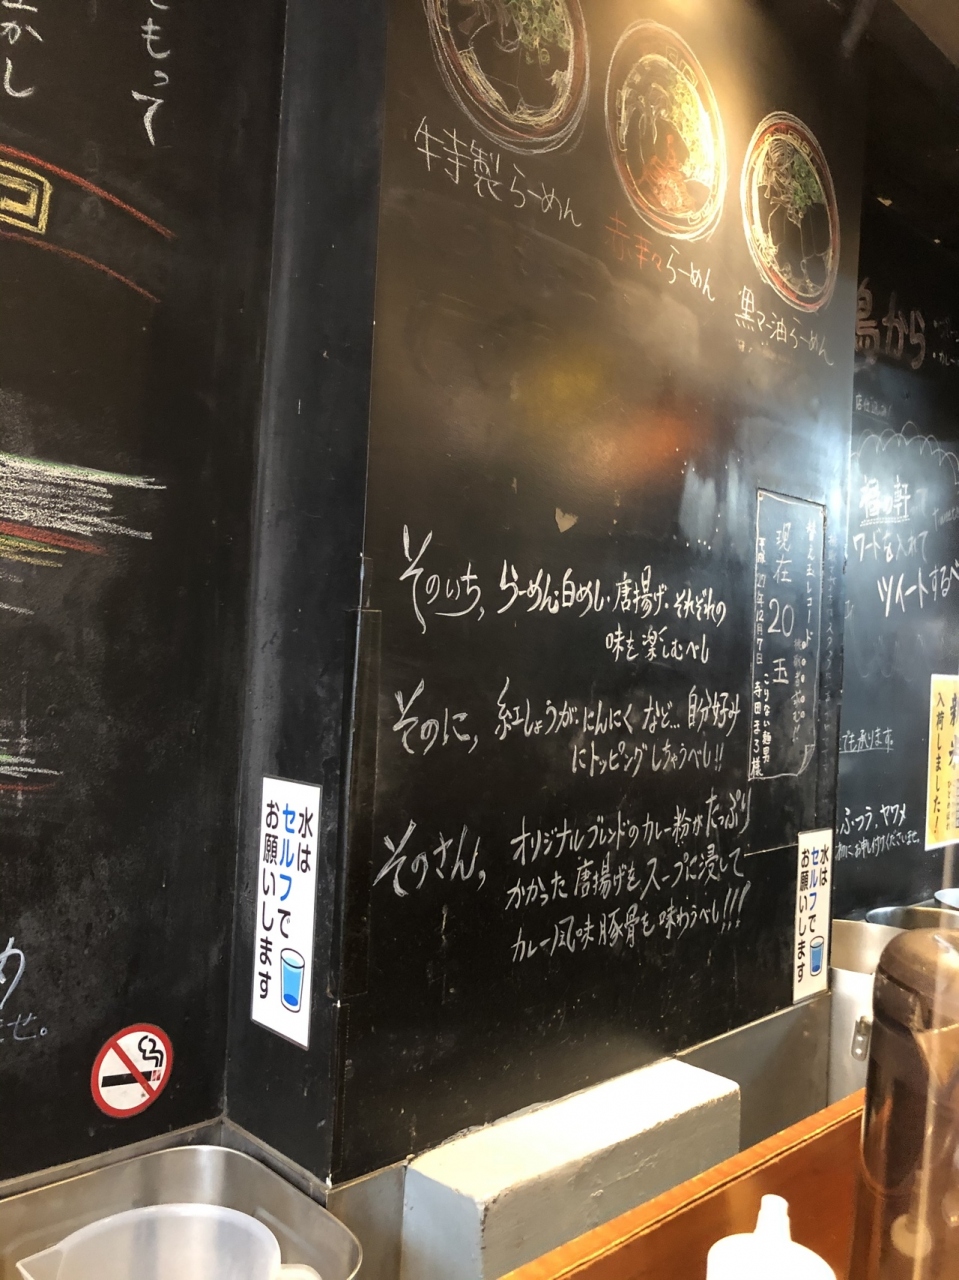 もって
かし
特製らーめん
赤辛々らーめん
黒マー油らーめん
鳥から
そのいち、らーめん・白めし・唐揚げ・それぞれの
味を楽しむべし
そのに、紅しょうが・にんにく など… 自分好み
にトッピングしちゃうべし!!
そのさん、オリジナルブレンドのカレー粉がたっぷり
かかった唐揚げをスープに浸して
カレー風味豚骨を味わうべし!!!
替え玉レコード
現在20玉
平成27年12月7日
寺田まろ様
ワードを入れて
ツイートするべ
でも承ります。
ふつう、ヤワメ
入荷しました!
水は
セルフで
お願いします
水は
セルフで
お願いします
せ。